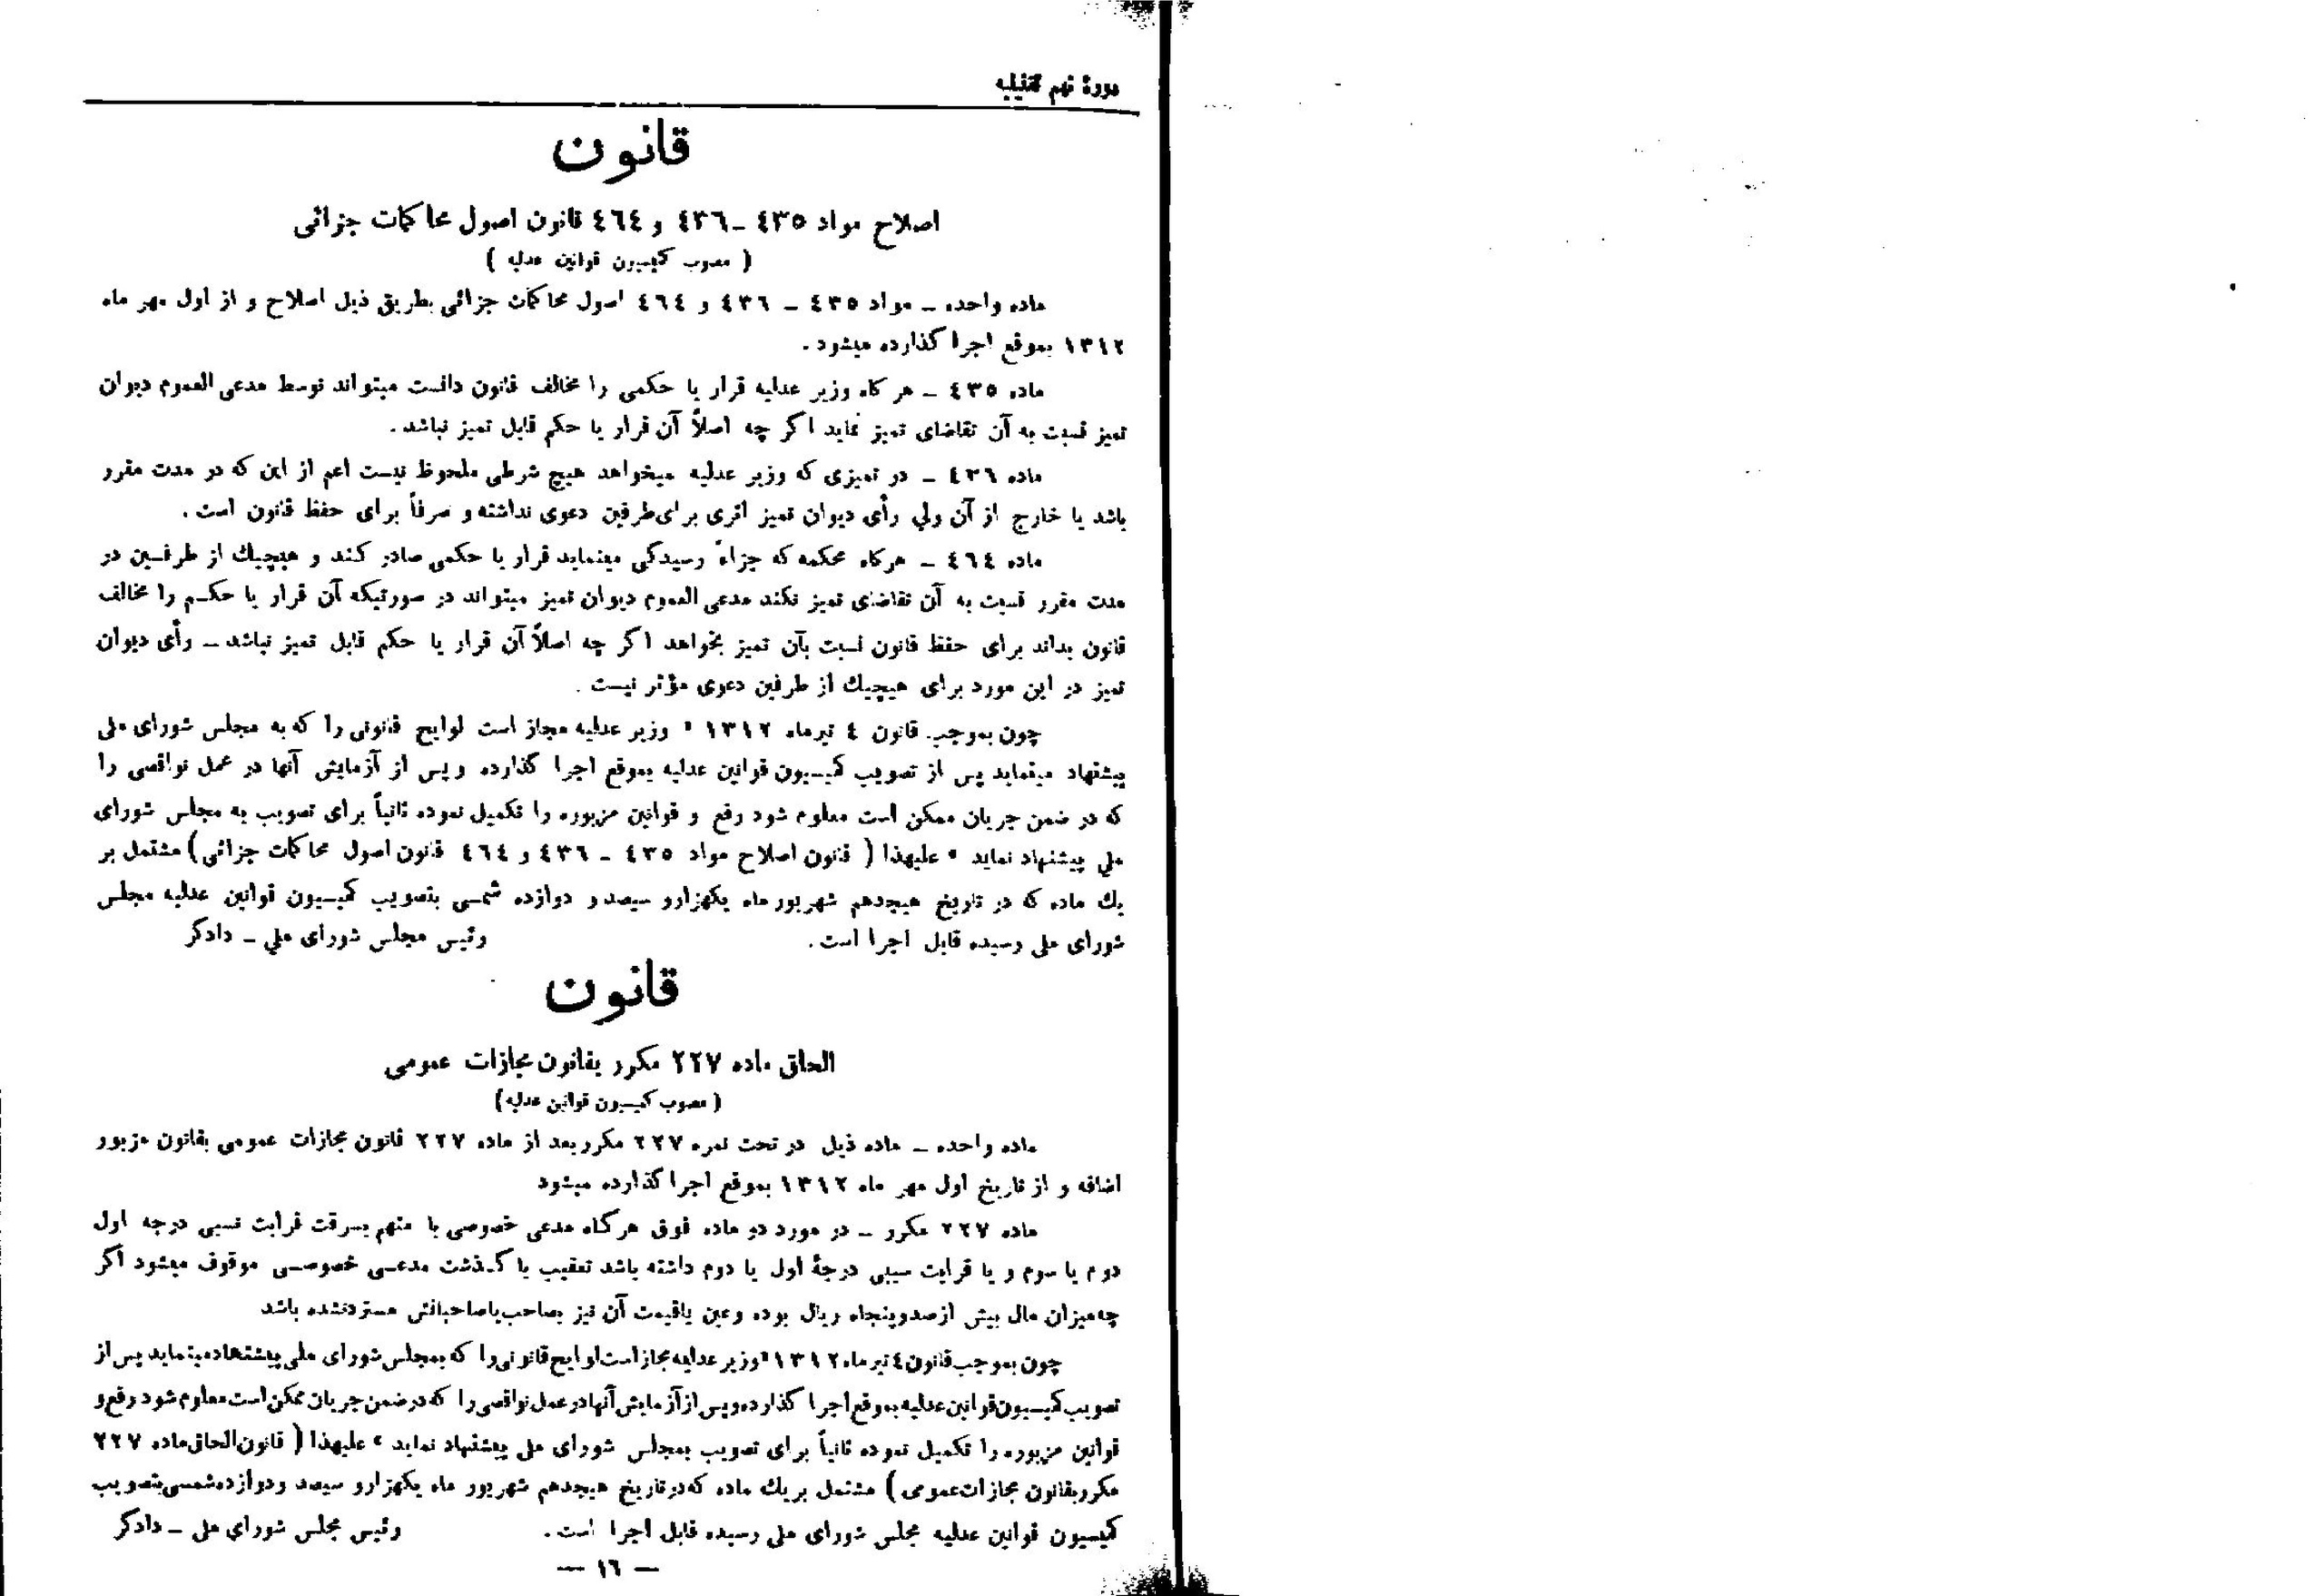 دورهٔ نهم تقنینیه
قانون
اصلاح مواد ٤٣٥ ـ ٤٣٦ و ٤٦٤ قانون اصول محاکمات جزائی
( مصوب کمیسیون قوانین عدلیه )
ماده واحده ـ مواد ٤٣٥ ـ ٤٣٦ و ٤٦٤ اصول محاکمات جزائی بطریق ذیل اصلاح و از اول مهر ماه
١٣١٢ بموقع اجرا گذارده میشود .
ماده ٤٣٥ ـ هر گاه وزیر عدلیه قرار یا حکمی را مخالف قانون دانست میتواند توسط مدعی العموم دیوان
تمیز نسبت به آن تقاضای تمیز نماید اگر چه اصلاً آن قرار یا حکم قابل تمیز نباشد .
ماده ٤٣٦ ـ در تمیزی که وزیر عدلیه میخواهد هیچ شرطی ملحوظ نیست اعم از این که در مدت مقرر
باشد یا خارج از آن ولی رأی دیوان تمیز اثری برای طرفین دعوی نداشته و صرفاً برای حفظ قانون است .
ماده ٤٦٤ ـ هرگاه محکمه که جزاءً رسیدگی مینماید قرار یا حکمی صادر کند و هیچیک از طرفین در
مدت مقرر نسبت به آن تقاضای تمیز نکند مدعی العموم دیوان تمیز میتواند در صورتیکه آن قرار یا حکم را مخالف
قانون بداند برای حفظ قانون نسبت بآن تمیز بخواهد اگر چه اصلاً آن قرار یا حکم قابل تمیز نباشد ـ رأی دیوان
تمیز در این مورد برای هیچیک از طرفین دعوی مؤثر نیست .
چون بموجب قانون ٤ تیرماه ١٣١٢ « وزیر عدلیه مجاز است لوایح قانونی را که به مجلس شورای ملی
پیشنهاد مینماید پس از تصویب کمیسیون قوانین عدلیه بموقع اجرا گذارده و پس از آزمایش آنها در عمل نواقصی را
که در ضمن جریان ممکن است معلوم شود رفع و قوانین مزبوره را تکمیل نموده ثانیاً برای تصویب به مجلس شورای
ملی پیشنهاد نماید » علیهذا ( قانون اصلاح مواد ٤٣٥ ـ ٤٣٦ و ٤٦٤ قانون اصول محاکمات جزائی ) مشتمل بر
یک ماده که در تاریخ هیجدهم شهریور ماه یکهزار و سیصد و دوازده شمسی بتصویب کمیسیون قوانین عدلیه مجلس
شورای ملی رسیده قابل اجرا است . رئیس مجلس شورای ملی ـ دادگر
قانون
الحاق ماده ٢٢٧ مکرر بقانون مجازات عمومی
( مصوب کمیسیون قوانین عدلیه )
ماده واحده ـ ماده ذیل در تحت نمره ٢٢٧ مکرر بعد از ماده ٢٢٧ قانون مجازات عمومی بقانون مزبور
اضافه و از تاریخ اول مهر ماه ١٣١٢ بموقع اجرا گذارده میشود
ماده ٢٢٧ مکرر ـ در مورد دو ماده فوق هرگاه مدعی خصوصی با متهم بسرقت قرابت نسبی درجه اول
دوم یا سوم و یا قرابت سببی درجهٔ اول یا دوم داشته باشد تعقیب با گذشت مدعی خصوصی موقوف میشود اگر
چه میزان مال بیش از صد و پنجاه ریال بوده و عین یا قیمت آن نیز بصاحب یا صاحبانش مسترد نشده باشد
چون بموجب قانون ٤ تیر ماه ١٣١٢ « وزیر عدلیه مجاز است لوایح قانونی را که بمجلس شورای ملی پیشنهاد مینماید پس از
تصویب کمیسیون قوانین عدلیه بموقع اجرا گذارده و پس از آزمایش آنها در عمل نواقصی را که در ضمن جریان ممکن است معلوم شود رفع و
قوانین مزبوره را تکمیل نموده ثانیاً برای تصویب بمجلس شورای ملی پیشنهاد نماید » علیهذا ( قانون الحاق ماده ٢٢٧
مکرر بقانون مجازات عمومی ) مشتمل بر یک ماده که در تاریخ هیجدهم شهریور ماه یکهزار و سیصد و دوازده شمسی بتصویب
کمیسیون قوانین عدلیه مجلس شورای ملی رسیده قابل اجرا است . رئیس مجلس شورای ملی ـ دادگر
— ١٦ —